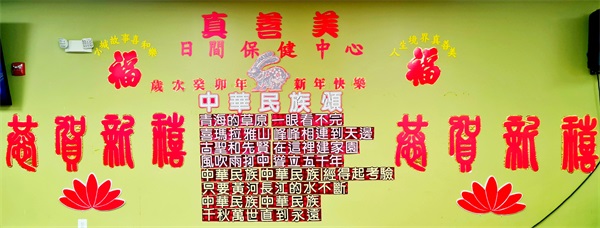 真善美
日間保健中心
小城故事喜和樂
人生境界真善美
福
福
歲次癸卯年 新年快樂
中華民族頌
恭賀新禧
恭賀新禧
青海的草原 一眼看不完
喜瑪拉雅山 峰峰相連到天邊
古聖和先賢 在這裡建家園
風吹雨打中 聳立五千年
中華民族 中華民族 經得起考驗
只要黃河長江的水不斷
中華民族 中華民族
千秋萬世直到永遠